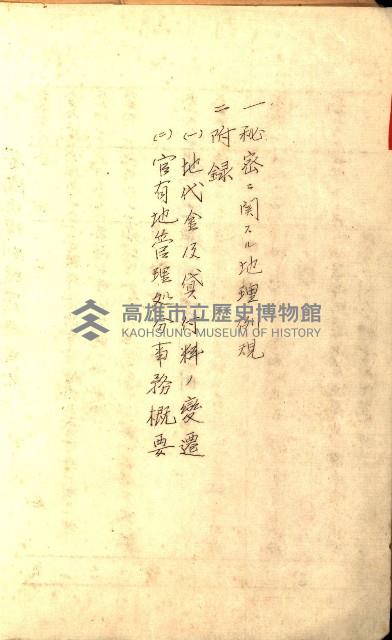 一 秘密ニ関スル地理例規
二 附録
(一) 地代金及貸付料ノ変遷
(二) 官有地管理処分事務概要
高雄市立歷史博物館
KAOHSIUNG MUSEUM OF HISTORY